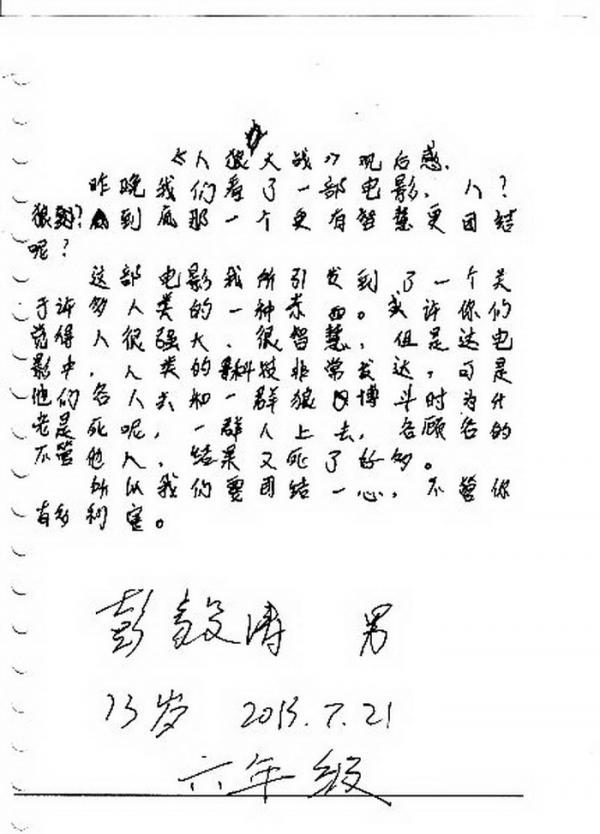 《人狼大战》观后感.
昨晚我们看了一部电影，人？
狼？到底那一个更有智慧更团结
呢？
这部电影我所引发到了一个关
于许多人类的一种东西。或许你们
觉得人很强大、很智慧，但是这电
影中，人类的科技非常发达，可是
他们各人去和一群狼博斗时为什
老是死呢，一群人上去，各顾各的
不管他人，结果又死了好多。
所以我们要团结一心，不管你
有多利害。
彭毅涛 男
13岁 2013.7.21
六年级